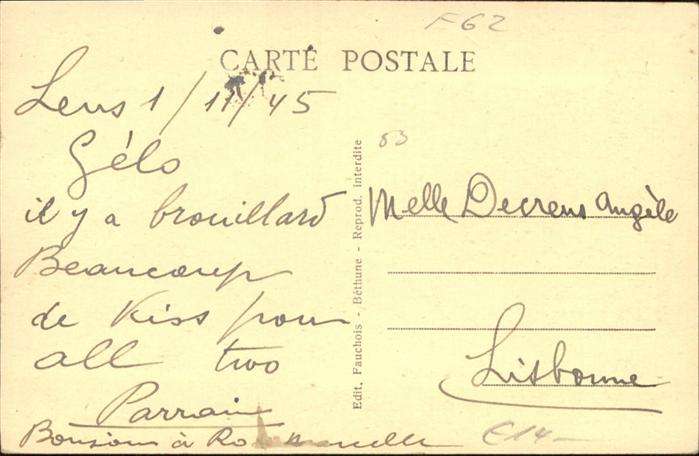 F62
CARTE POSTALE
Lens 1/11/45
Gélo
il y a brouillard
Beaucoup
de Kiss pour
all two
Parrain
Bonjour à
E14-
83
Melle Decrens Angèle
Lisbonne
Edit. Fauchois - Béthune - Reprod. interdite